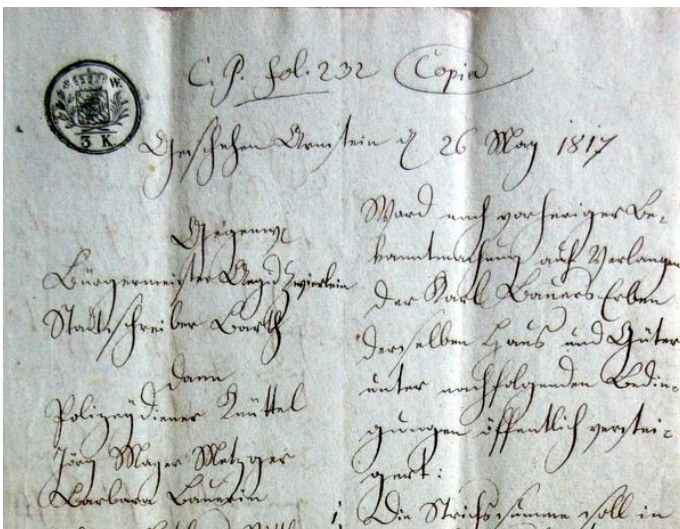 S. W.
3 K
C. P. fol. 232 Copia
Geschehen Arnstein d 26 May 1817
Gegenw
Bürgermeister Aegid Zwierlein
Stadtschreiber Barth
dann
Polizeydiener Knüttel
Jörg Mayer Metzger
Barbara Bauerin
Ward nach vorheriger Be-
kanntmachung auf Verlangen
der Karl Bauers Erben
derselben Haus und Güter
unter nachfolgenden Bedin-
gungen öffentlich verstei-
gert:
1, Die Strichsumme soll in